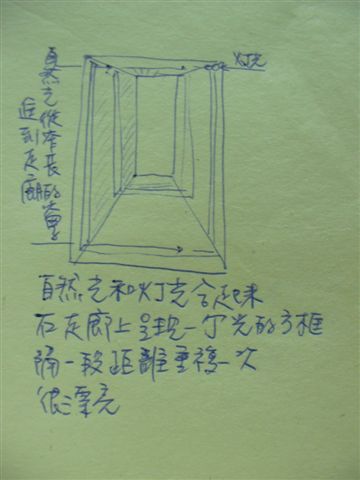 灯光
自然光從窄長的窗
進到走廊
自然光和灯光合起來
在走廊上呈現一个光的方框
隔一段距離重複一次
很漂亮